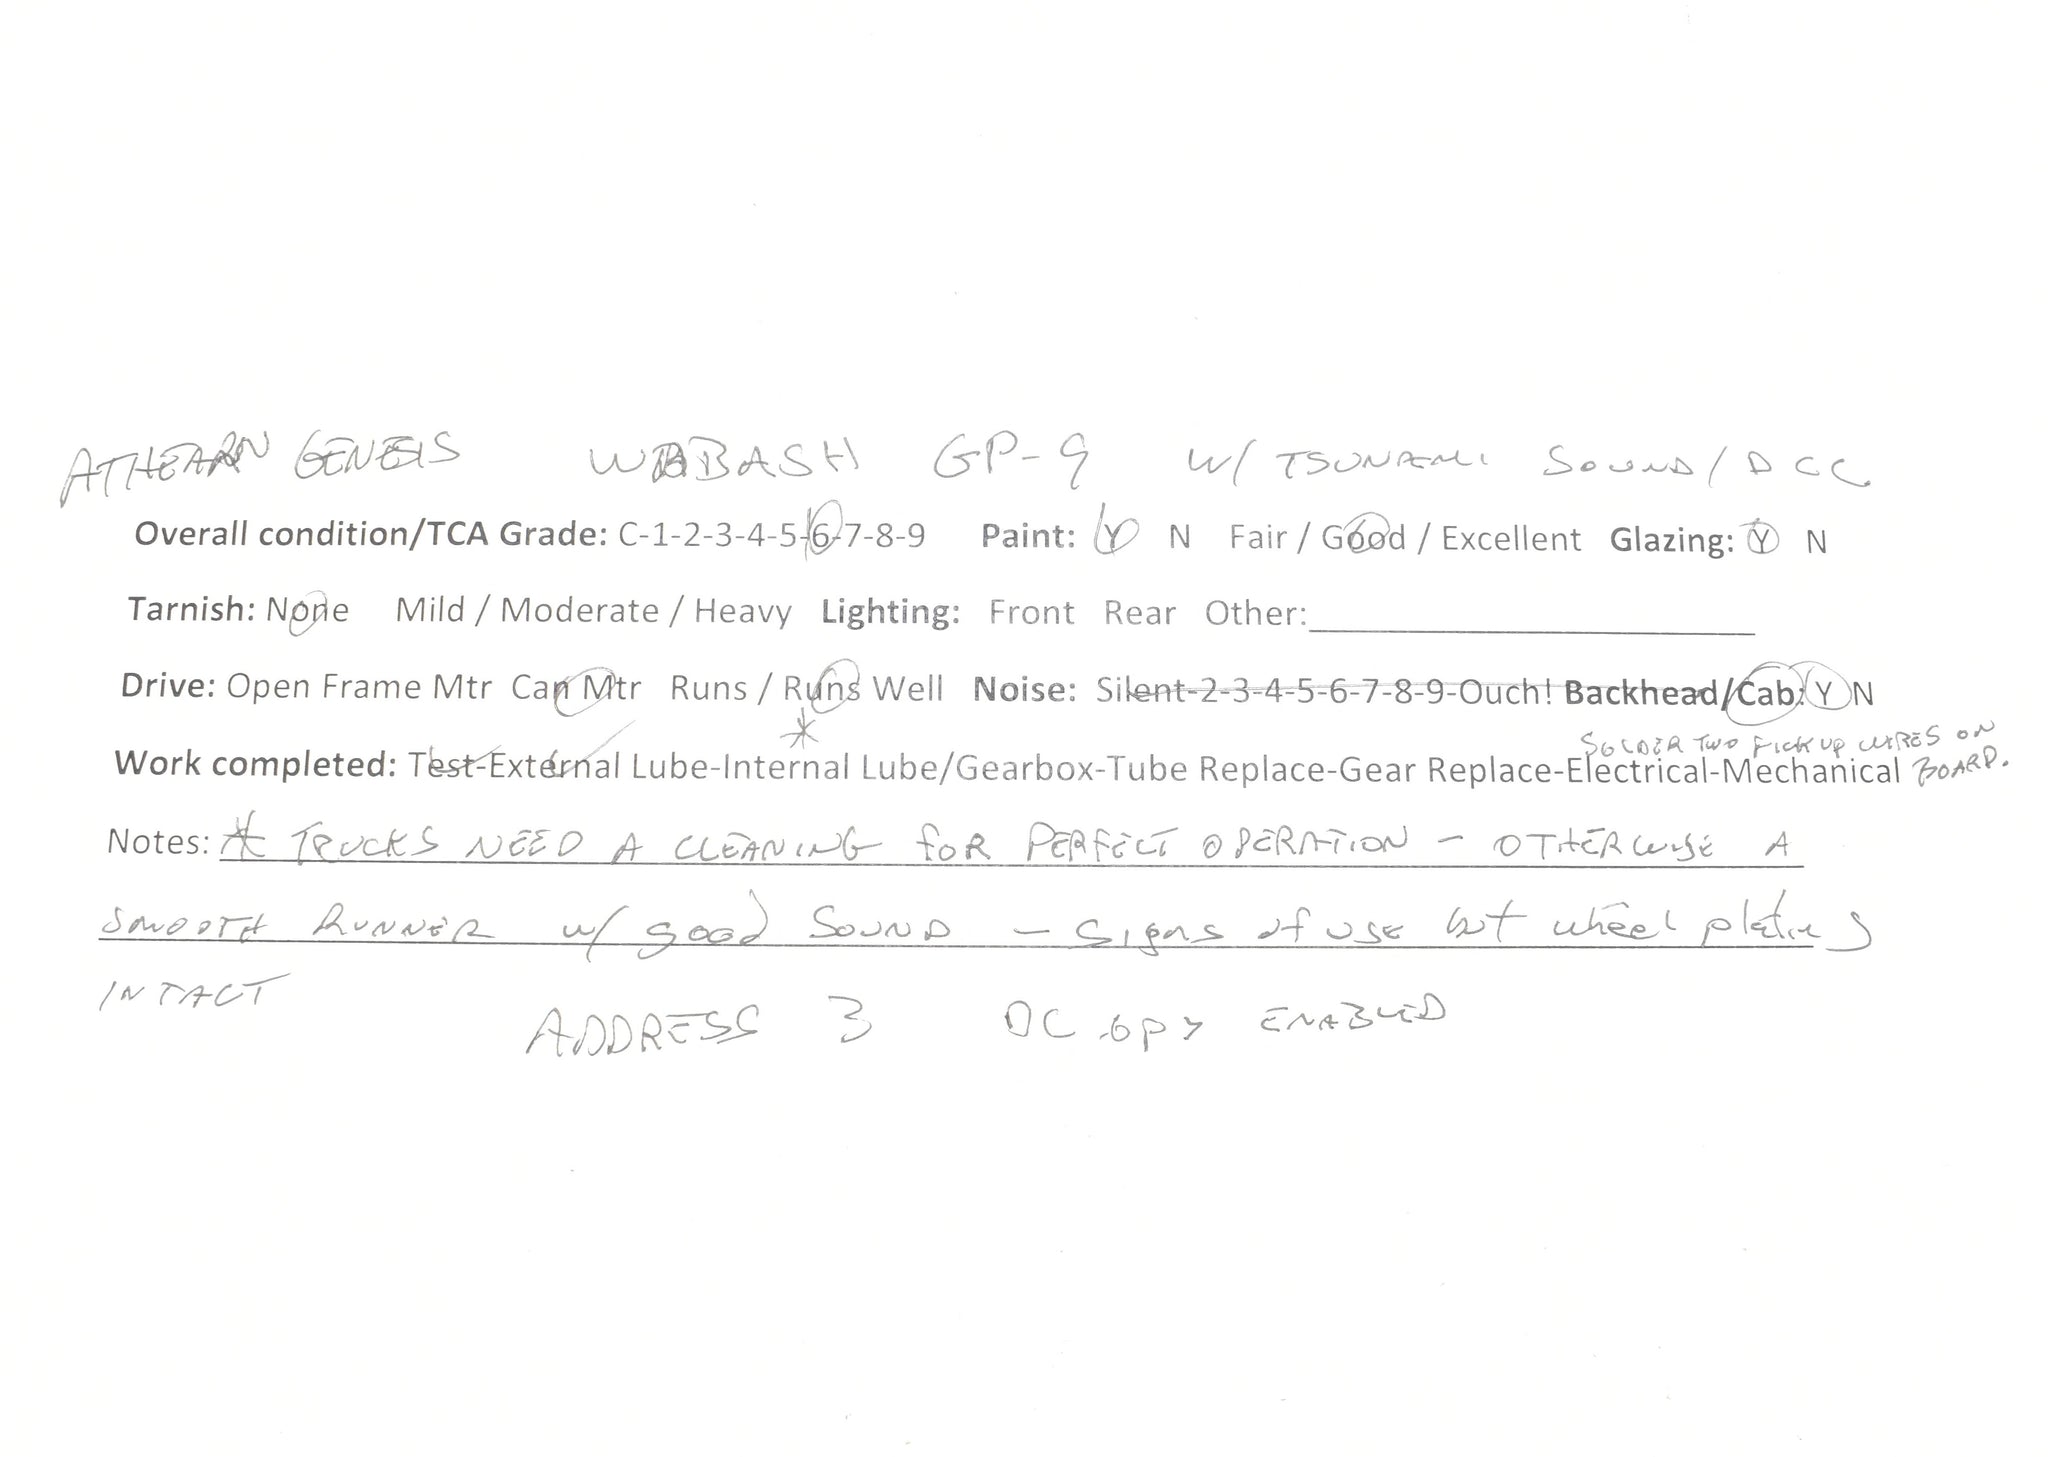 ATHEARN GENESIS WABASH GP-9 W/ TSUNAMI SOUND/DCC
Overall condition/TCA Grade: C-1-2-3-4-5-6-7-8-9 Paint: Y N Fair / Good / Excellent Glazing: Y N
Tarnish: None Mild / Moderate / Heavy Lighting: Front Rear Other:
Drive: Open Frame Mtr Can Mtr Runs / Runs Well Noise: Silent-2-3-4-5-6-7-8-9-Ouch! Backhead/Cab: Y N
*
SOLDER TWO PICK UP WIRES ON
Work completed: Test-External Lube-Internal Lube/Gearbox-Tube Replace-Gear Replace-Electrical-Mechanical BOARD.
Notes: * TRUCKS NEED A CLEANING FOR PERFECT OPERATION - OTHERWISE A
SMOOTH RUNNER W/ good SOUND - Signs of use but wheel plating
INTACT
ADDRESS 3 DC ENABLED